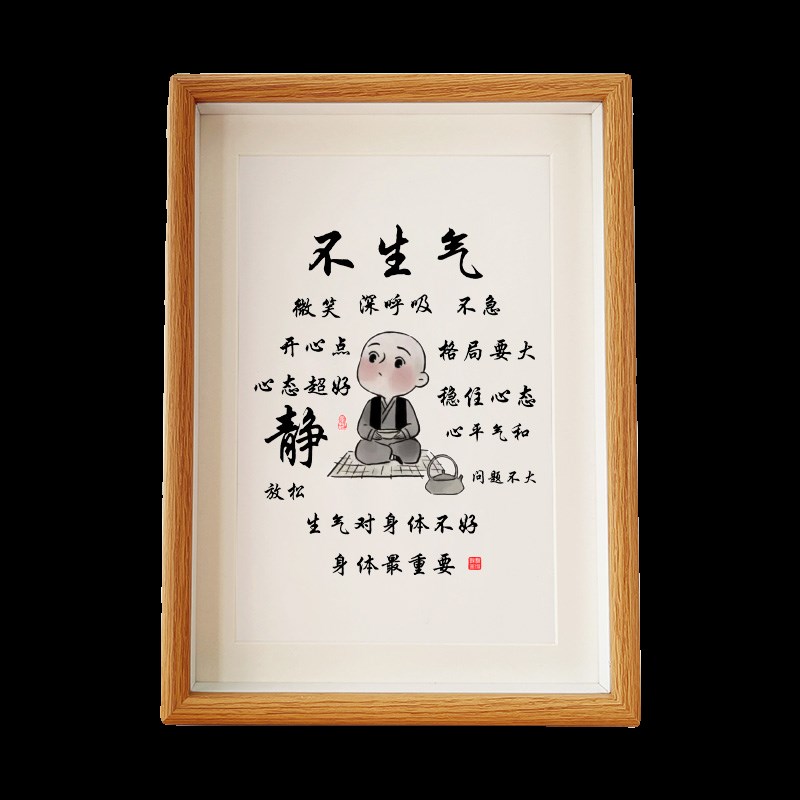 不生气
微笑 深呼吸 不急
开心点
格局要大
心态超好
稳住心态
静
心平气和
放松
问题不大
生气对身体不好
身体最重要